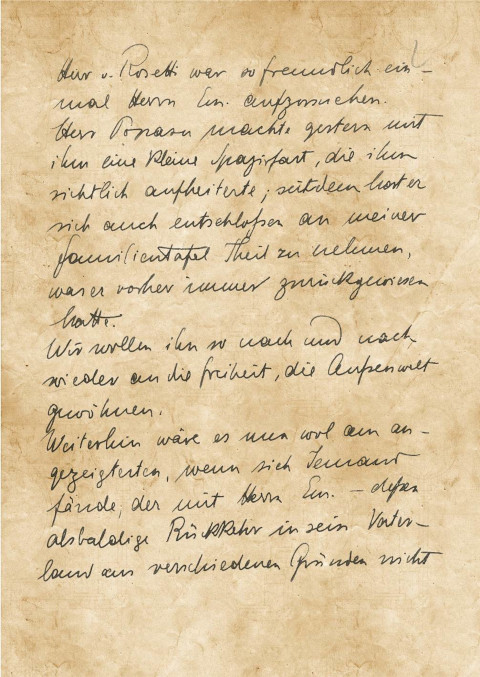 Herr v. Rosetti war so freundlich ein-
mal Herrn Em. aufzusuchen.
Herr Poganu machte gestern mit
ihm eine kleine Spazirfart, die ihn
sichtlich aufheiterte; seitdem hat er
sich auch entschloßen an meiner
familientafel Theil zu nehmen,
was er vorher immer zurückgewiesen
hatte.
Wir wollen ihn so nach und nach
wieder an die freiheit, die Außenwelt
gewöhnen.
Weiterhin wäre es nun wol am an-
gezeigtesten, wenn sich Jemand
fände, der mit Herrn Em. – deßen
alsbaldige Rückkehr in sein Vater-
land aus verschiedenen Gründen nicht